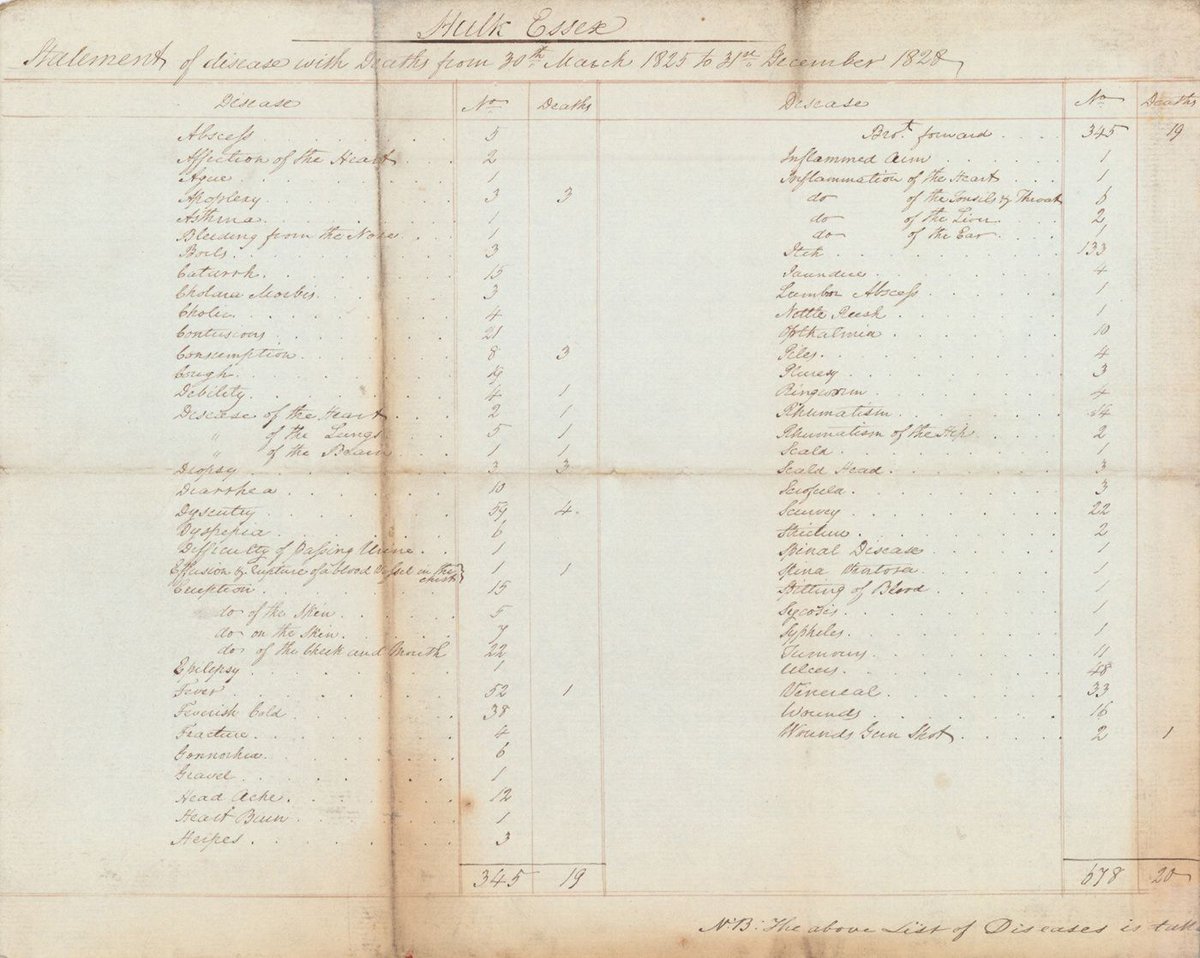 Hulk Essex
Statement of disease with Deaths from 30th March 1825 to 31st December 1828
Disease No Deaths
Abscess 5
Affection of the Heart 2
Ague 1
Apoplexy 3 3
Asthma 1
Bleeding from the Nose 1
Boils 3
Catarrh 15
Cholara Morbis 3
Cholic 4
Contusions 21
Consumption 8 3
Cough 19
Debility 4 1
Disease of the Heart 2 1
" of the Lungs 5 1
" of the Brain 1 1
Dropsy 3 3
Diarrhea 10
Dysentry 59 4
Dyspepsia 6
Difficulty of Passing Urine 1
Effusion & rupture of a blood Vessel in the chest 1 1
Eruption 15
do of the Skin 5
do on the Skin 7
do of the Cheek and Mouth 22
Epilepsy 1
Fever 52 1
Feverish Cold 38
Fracture 4
Gonnorhea 6
Gravel 1
Head Ache 12
Heart Burn 1
Herpes 3
345 19
Disease No Deaths
Brot. forward 345 19
Inflammed Arm 1
Inflammation of the Heart 1
do of the Tonsils & Throat 8
do of the Liver 2
do of the Ear 1
Itch 133
Jaundice 4
Lumbor Abscess 1
Nettle Rash 1
Opthalmia 10
Piles 4
Pluresy 3
Ringworm 4
Rhumatism 14
Rhumatism of the Hip 2
Scald 1
Scald Head 3
Scrofula 3
Scurvey 22
Stricture 2
Spinal Disease 1
Spina Ventosa 1
Spitting of Blood 1
Sycosis 1
Sypheles 1
Tumours 11
Ulcers 48
Venereal 33
Wounds 16
Wounds Gun Shot 2 1
678 20
N.B: The above List of Diseases is